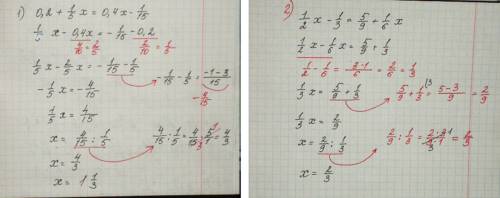 1) 0,2 + 1/5 x = 0,4x - 1/15
1/5 x - 0,4x = - 1/15 - 0,2
4/10 = 2/5   2/10 = 1/5
1/5 x - 2/5 x = - 1/15 - 1/5
- 1/15 - 1/5 = (-1-3)/15
- 4/15
- 1/5 x = - 4/15
1/5 x = 4/15
x = 4/15 : 1/5
4/15 : 1/5 = 4/15 · 5/1 = 4/3
3 1
x = 4/3
x = 1 1/3
2)
1/2 x - 1/3 = 5/9 + 1/6 x
1/2 x - 1/6 x = 5/9 + 1/3
1/2 - 1/6 = (2·1)/6 = 2/6 = 1/3
1/3 x = 5/9 + 1/3
5/9 + 1/3 (3 = (5-3)/9 = 2/9
1/3 x = 2/9
x = 2/9 : 1/3
2/9 : 1/3 = (2·3)/(9·1) = 2/3
1
3
x = 2/3